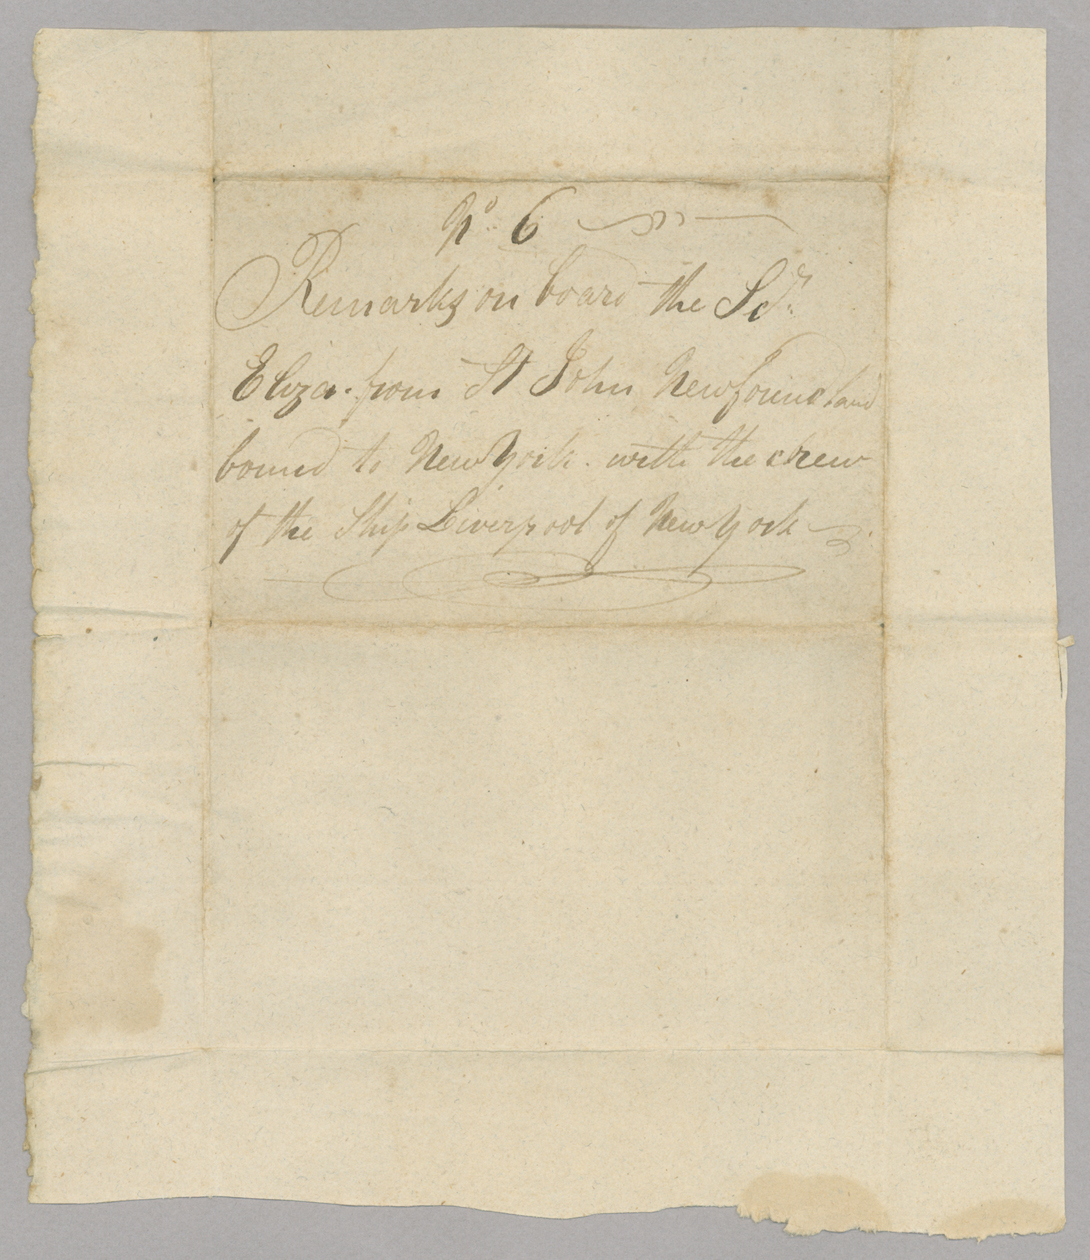 No. 6
Remarks on board the Scr.
Eliza. from St John Newfoundland
bound to New York. with the crew
of the Ship Liverpool of New York